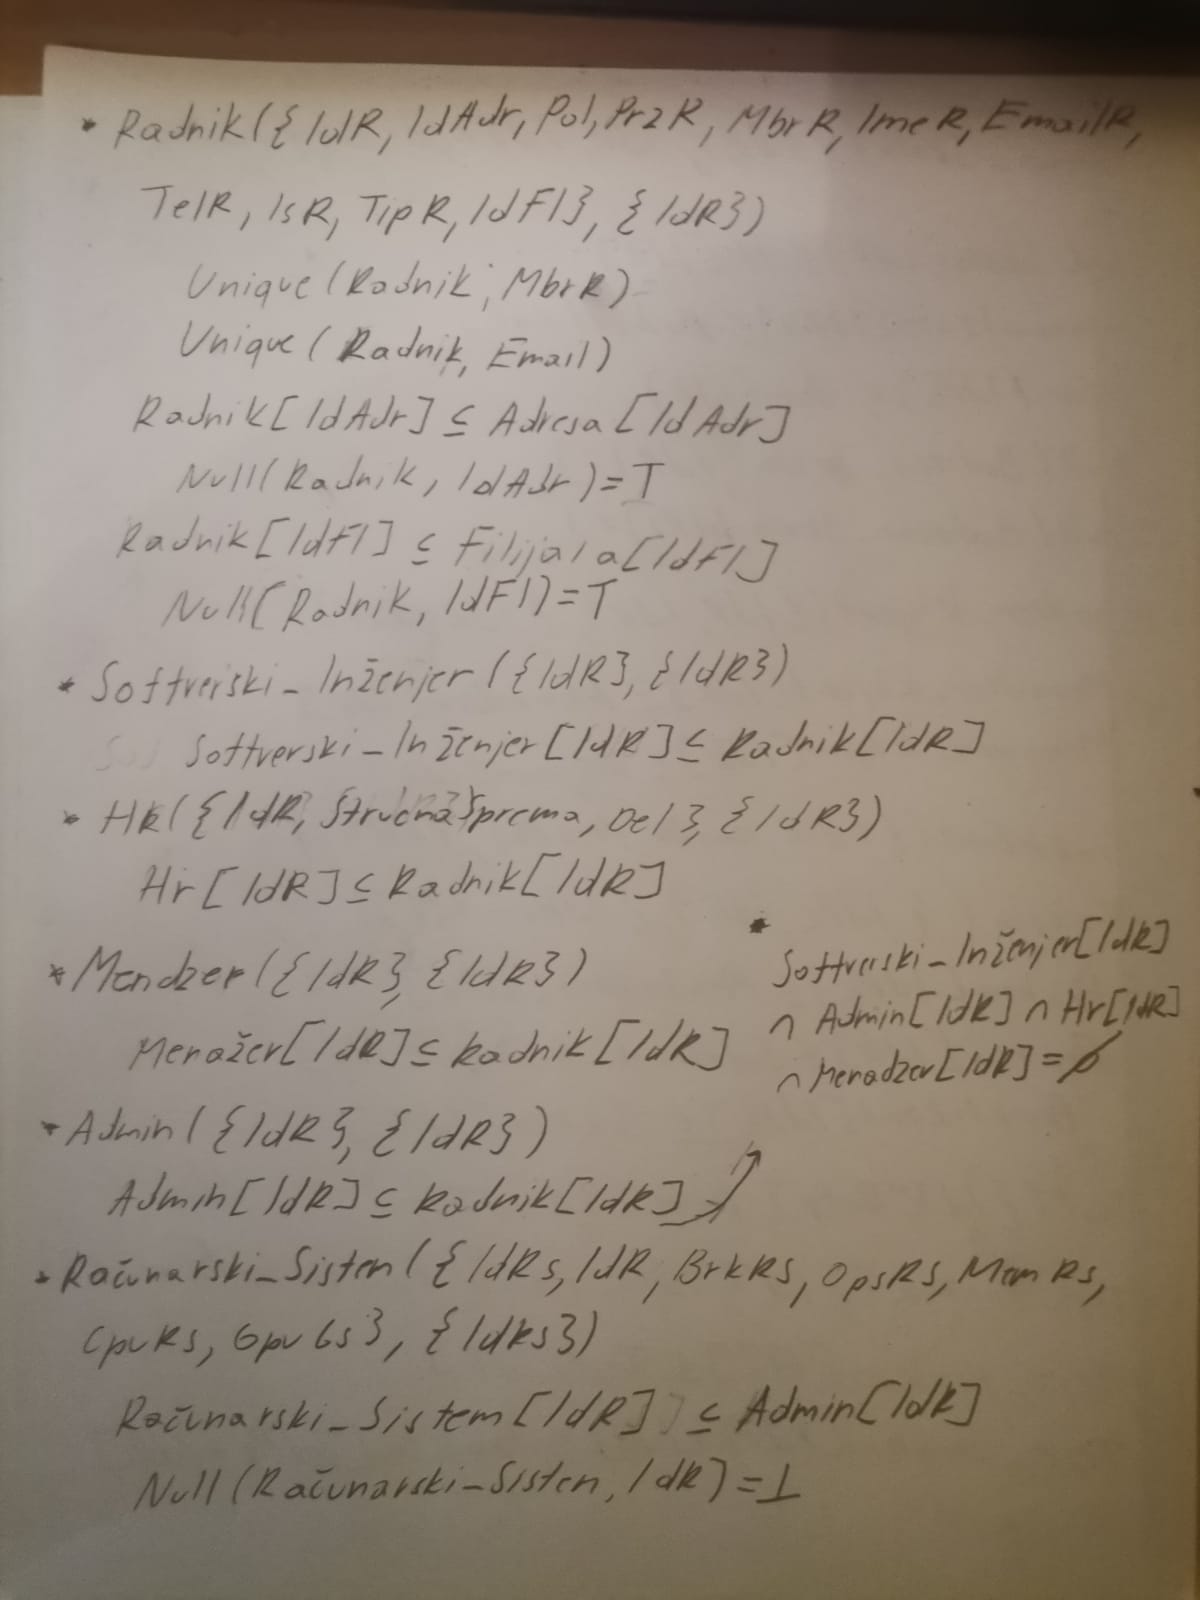 * Radnik({IdR, IdAdr, Pol, PrzR, MbrR, ImeR, EmailR,
TelR, IsR, TipR, IdFl}, {IdR})
Unique(Radnik, MbrR)
Unique(Radnik, Email)
Radnik[IdAdr] ⊆ Adresa[IdAdr]
Null(Radnik, IdAdr)=T
Radnik[IdFl] ⊆ Filijala[IdFl]
Null(Radnik, IdFl)=T
* Softverski_Inženjer({IdR}, {IdR})
Softverski_Inženjer[IdR] ⊆ Radnik[IdR]
* HR({IdR, StručnaSprema, Del}, {IdR})
Hr[IdR] ⊆ Radnik[IdR]
* Mendzer({IdR}, {IdR})
Menažer[IdR] ⊆ Radnik[IdR]
* Admin({IdR}, {IdR})
Admin[IdR] ⊆ Radnik[IdR]
* Softverski_Inženjer[IdR]
∩ Admin[IdR] ∩ Hr[IdR]
∩ Menadzer[IdR]=∅
* Računarski_Sistem({IdRs, IdR, BrkRs, OpsRs, MemRs,
CpuRs, GpuGs}, {IdRs})
Računarski_Sistem[IdR] ⊆ Admin[IdR]
Null(Računarski_Sistem, IdR)=⊥